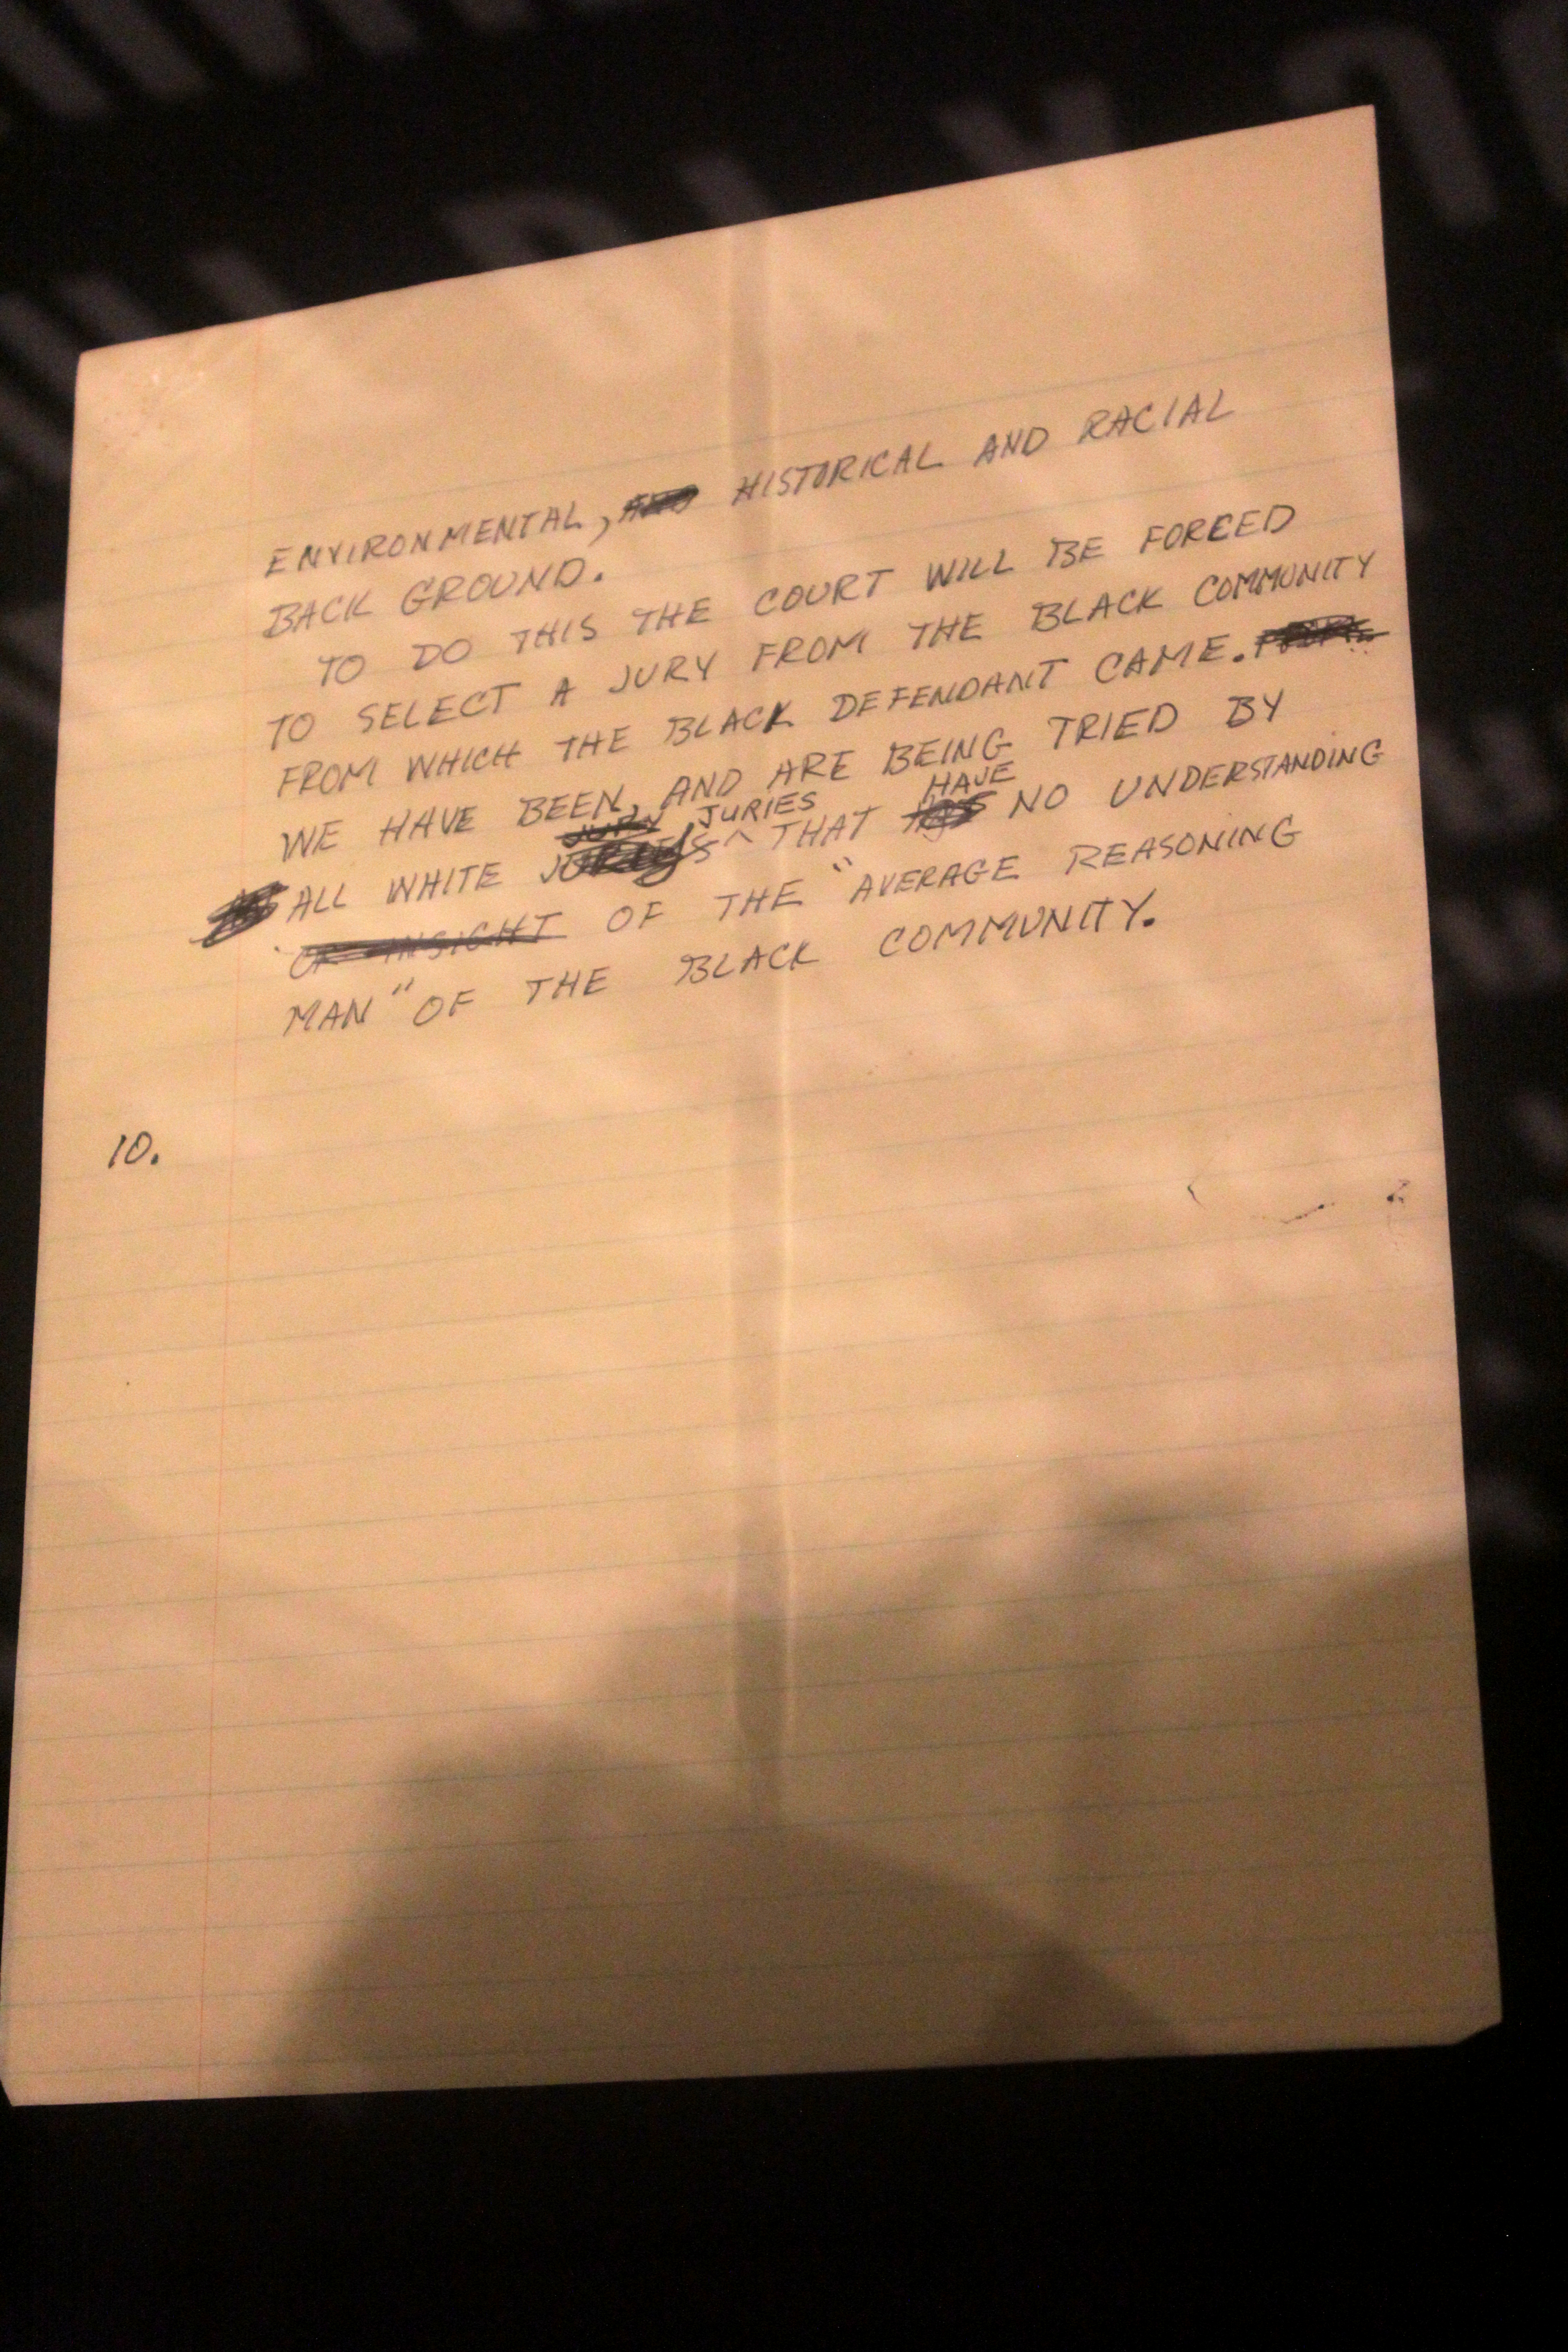 ENVIRONMENTAL, AND HISTORICAL AND RACIAL
BACK GROUND.
TO DO THIS THE COURT WILL BE FORCED
TO SELECT A JURY FROM THE BLACK COMMUNITY
FROM WHICH THE BLACK DEFENDANT CAME.
WE HAVE BEEN, AND ARE BEING TRIED BY
JURY JURIES HAVE
ALL WHITE THAT HAS NO UNDERSTANDING
OR INSIGHT OF THE "AVERAGE REASONING
MAN" OF THE BLACK COMMUNITY.
10.